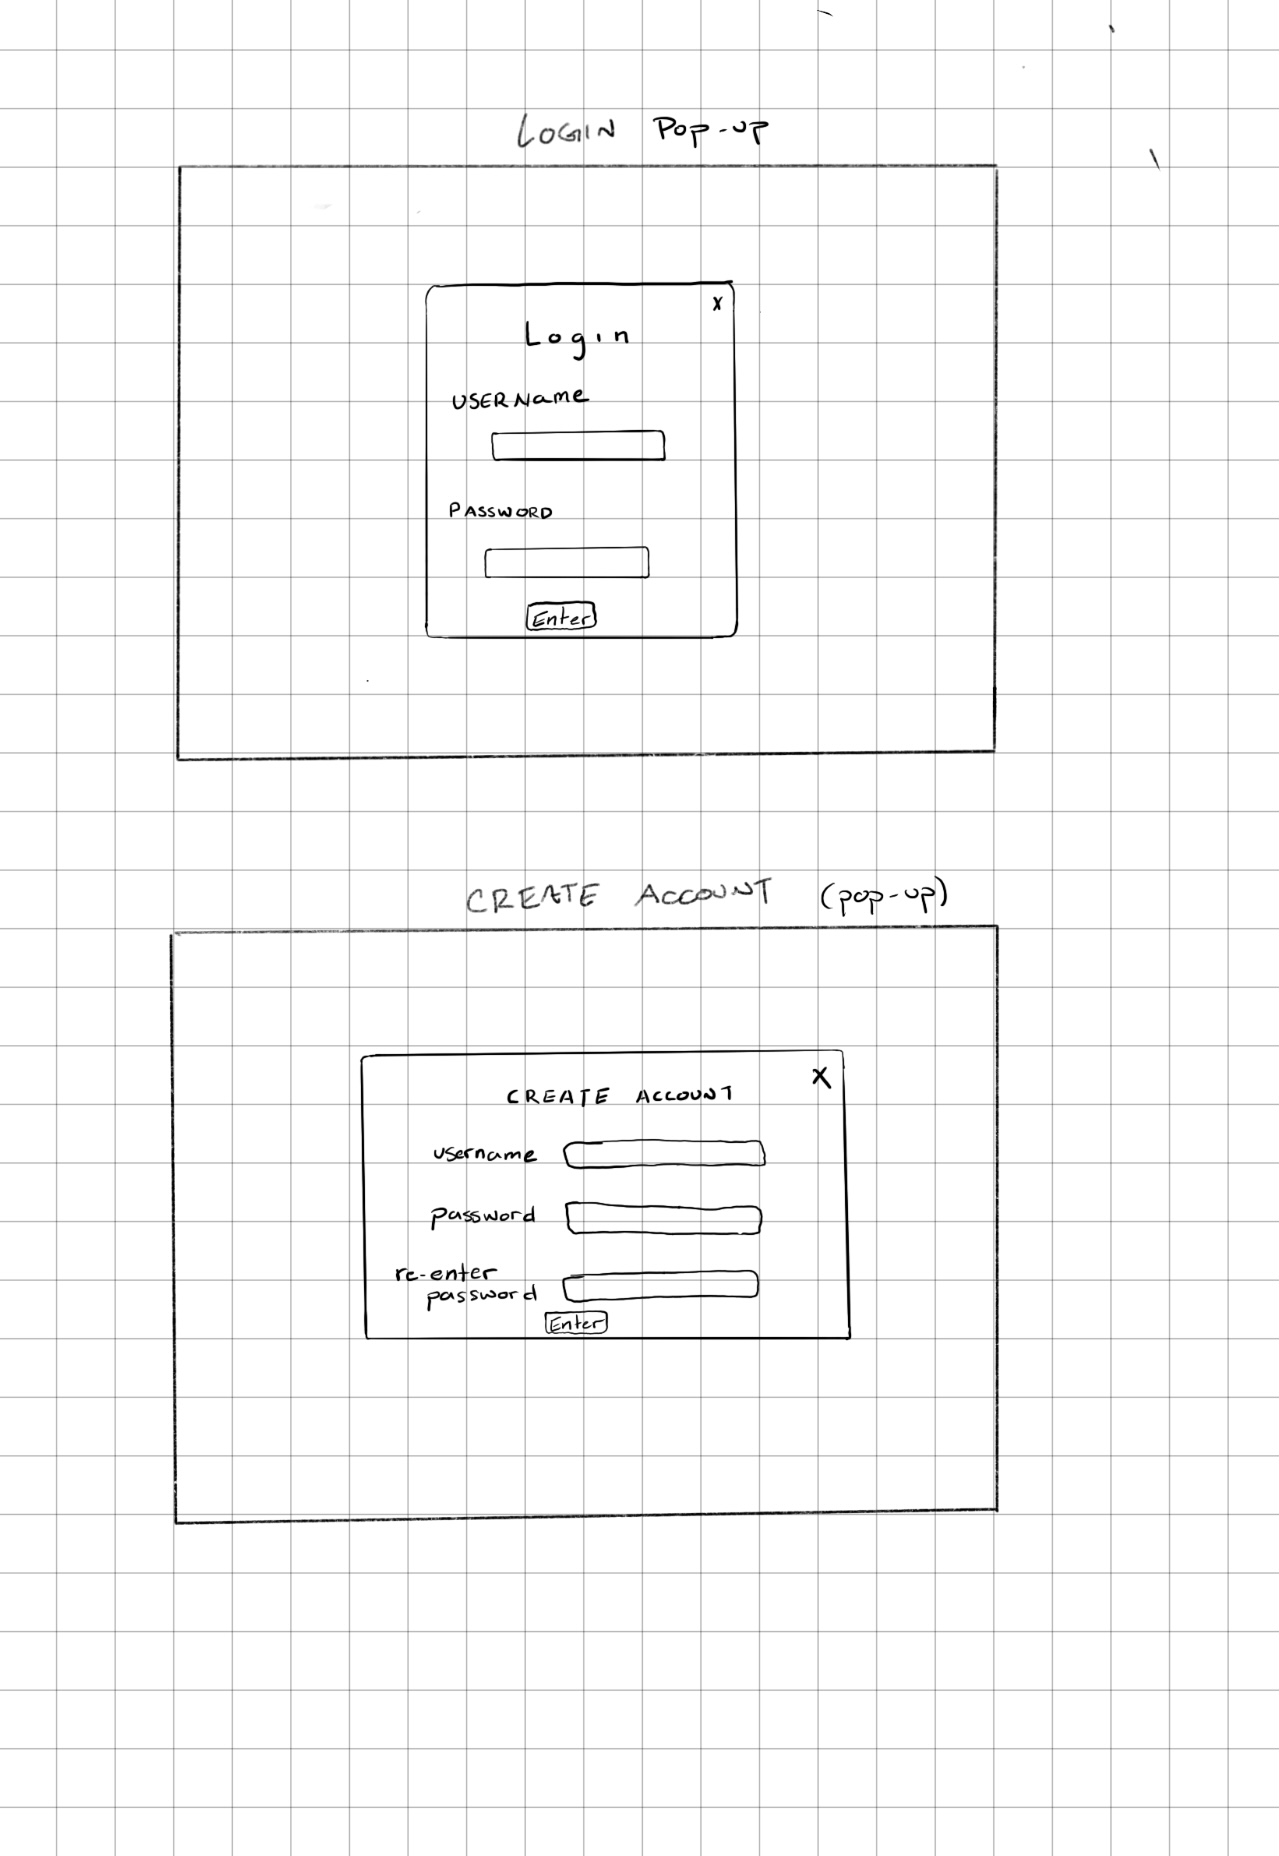 LOGIN Pop-up
x
Login
USERName
PASSWORD
Enter
CREATE ACCOUNT (pop-up)
X
CREATE ACCOUNT
username
password
re-enter
password
Enter